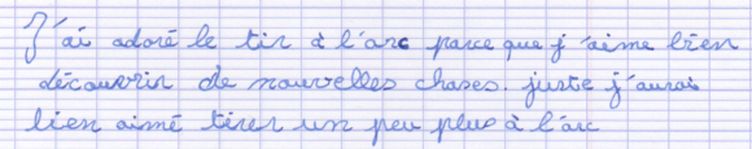 J'ai adoré le tir à l'arc parce que j'aime bien
découvrir de nouvelles choses. juste j'aurai
bien aimé tirer un peu plus à l'arc